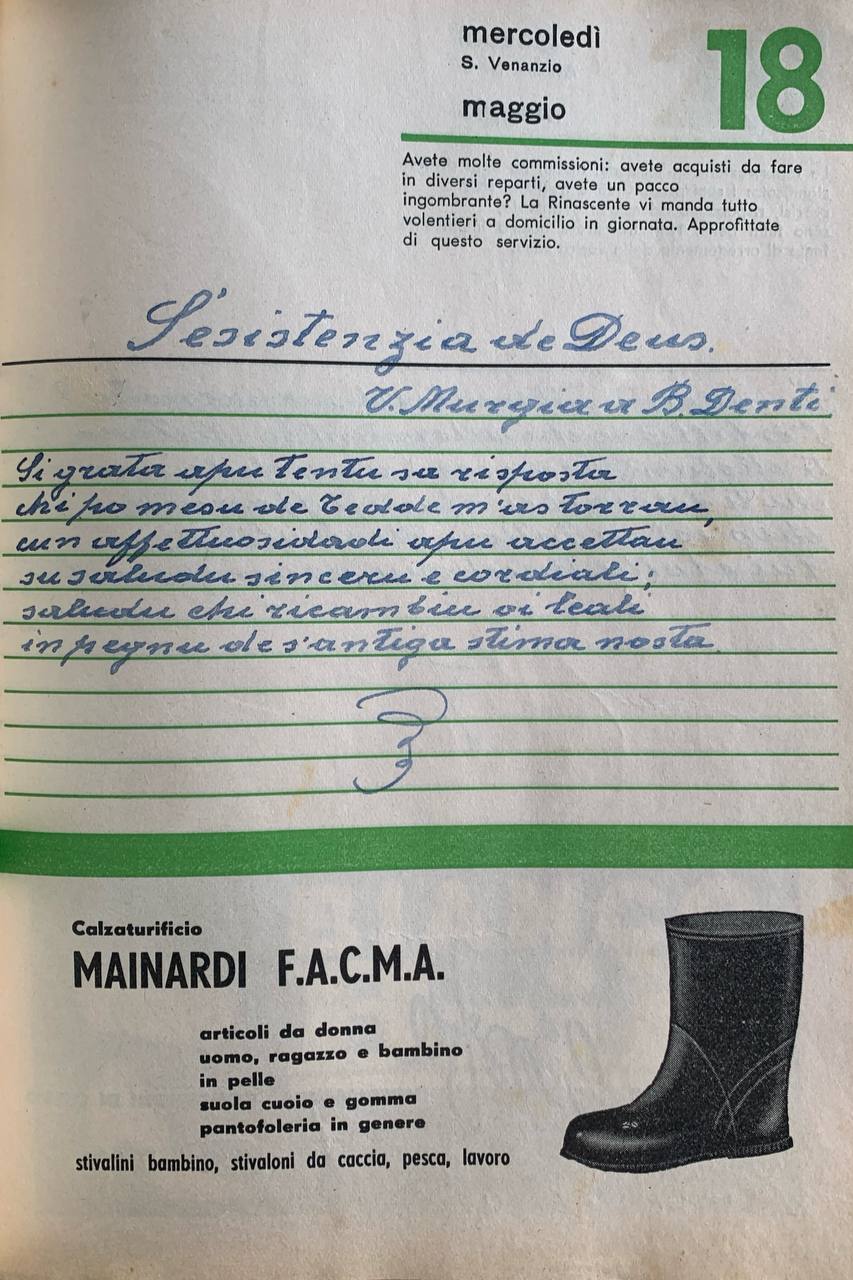 mercoledì
S. Venanzio
maggio
18
Avete molte commissioni: avete acquisti da fare
in diversi reparti, avete un pacco
ingombrante? La Rinascente vi manda tutto
volentieri a domicilio in giornata. Approfittate
di questo servizio.
S'esistenzia de Deus.
V. Murgia a B. Denti
Si grata apu tentu sa risposta
chi po mesu de Tedde m'as torrau,
cun affettuosidadi apu accettau
su saludu sinceru e cordiali;
saludu chi ricambiu oi leali
in pegnu de s'antiga stima nosta
Calzaturificio
MAINARDI F.A.C.M.A.
articoli da donna
uomo, ragazzo e bambino
in pelle
suola cuoio e gomma
pantofoleria in genere
stivalini bambino, stivaloni da caccia, pesca, lavoro